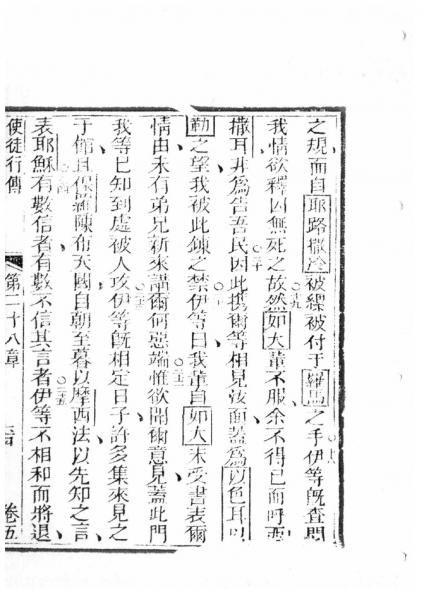 之規而自耶路撒冷被縲被付于羅馬之手伊等既查問
我情欲釋因無死之故然如大輩不服余不得已而呼西
撒耳非為告吾民因此携爾等相見面葢為以色耳以
勒之望我被此鍊之禁伊等曰我輩自如大未受書表爾
情由未有弟兄新來講爾何惡端惟欲聞爾意見葢此門
我等已知到處被人攻伊等既相定日子許多集來見之
于館且保羅陳布天國自朝至暮以摩西法以先知之言
表耶穌有數信者有數不信其言者伊等不相和而將退
使徒行傳 第二十八章 卷五